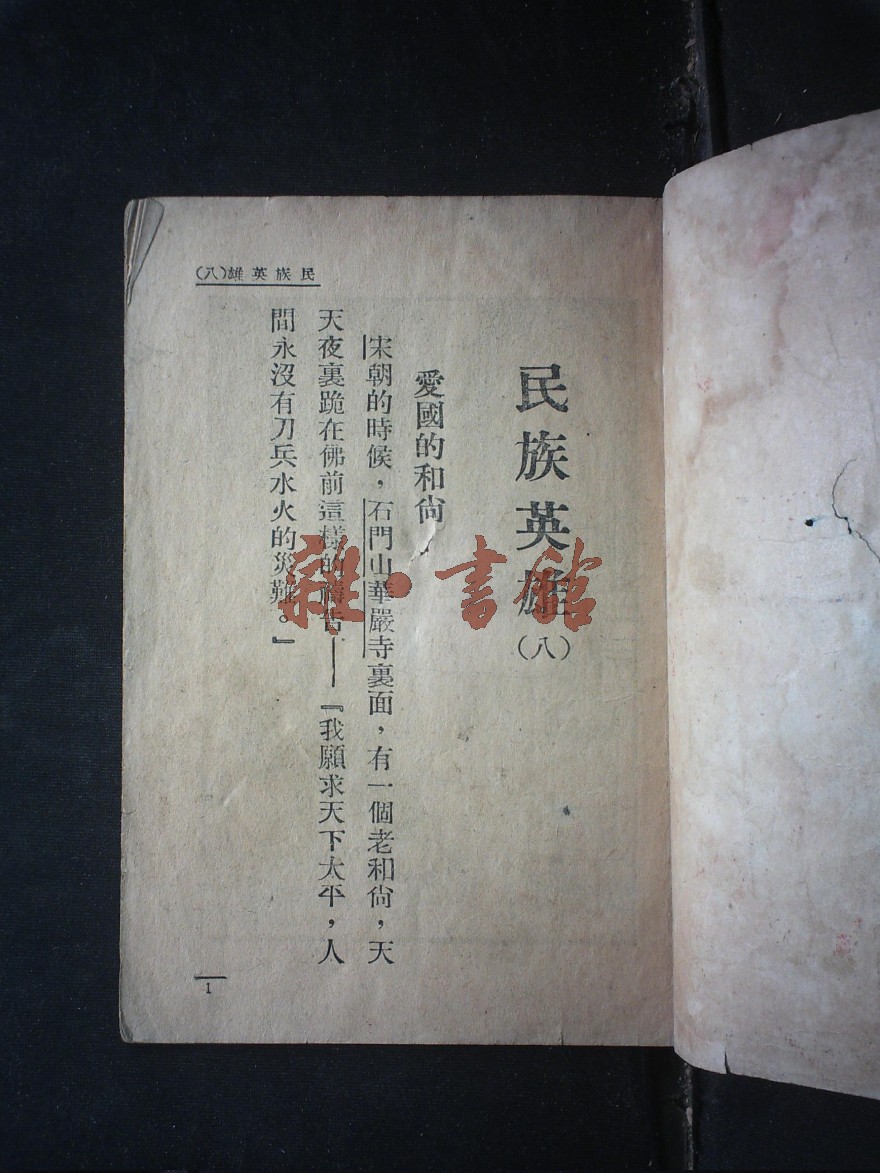 民族英雄(八)
民族英雄
(八)
愛國的和尙
宋朝的時候，石門山華嚴寺裏面，有一個老和尙，天
天夜裏跪在佛前這樣的禱告——『我願求天下太平，人
間永沒有刀兵水火的災難。』
1
雜·書館